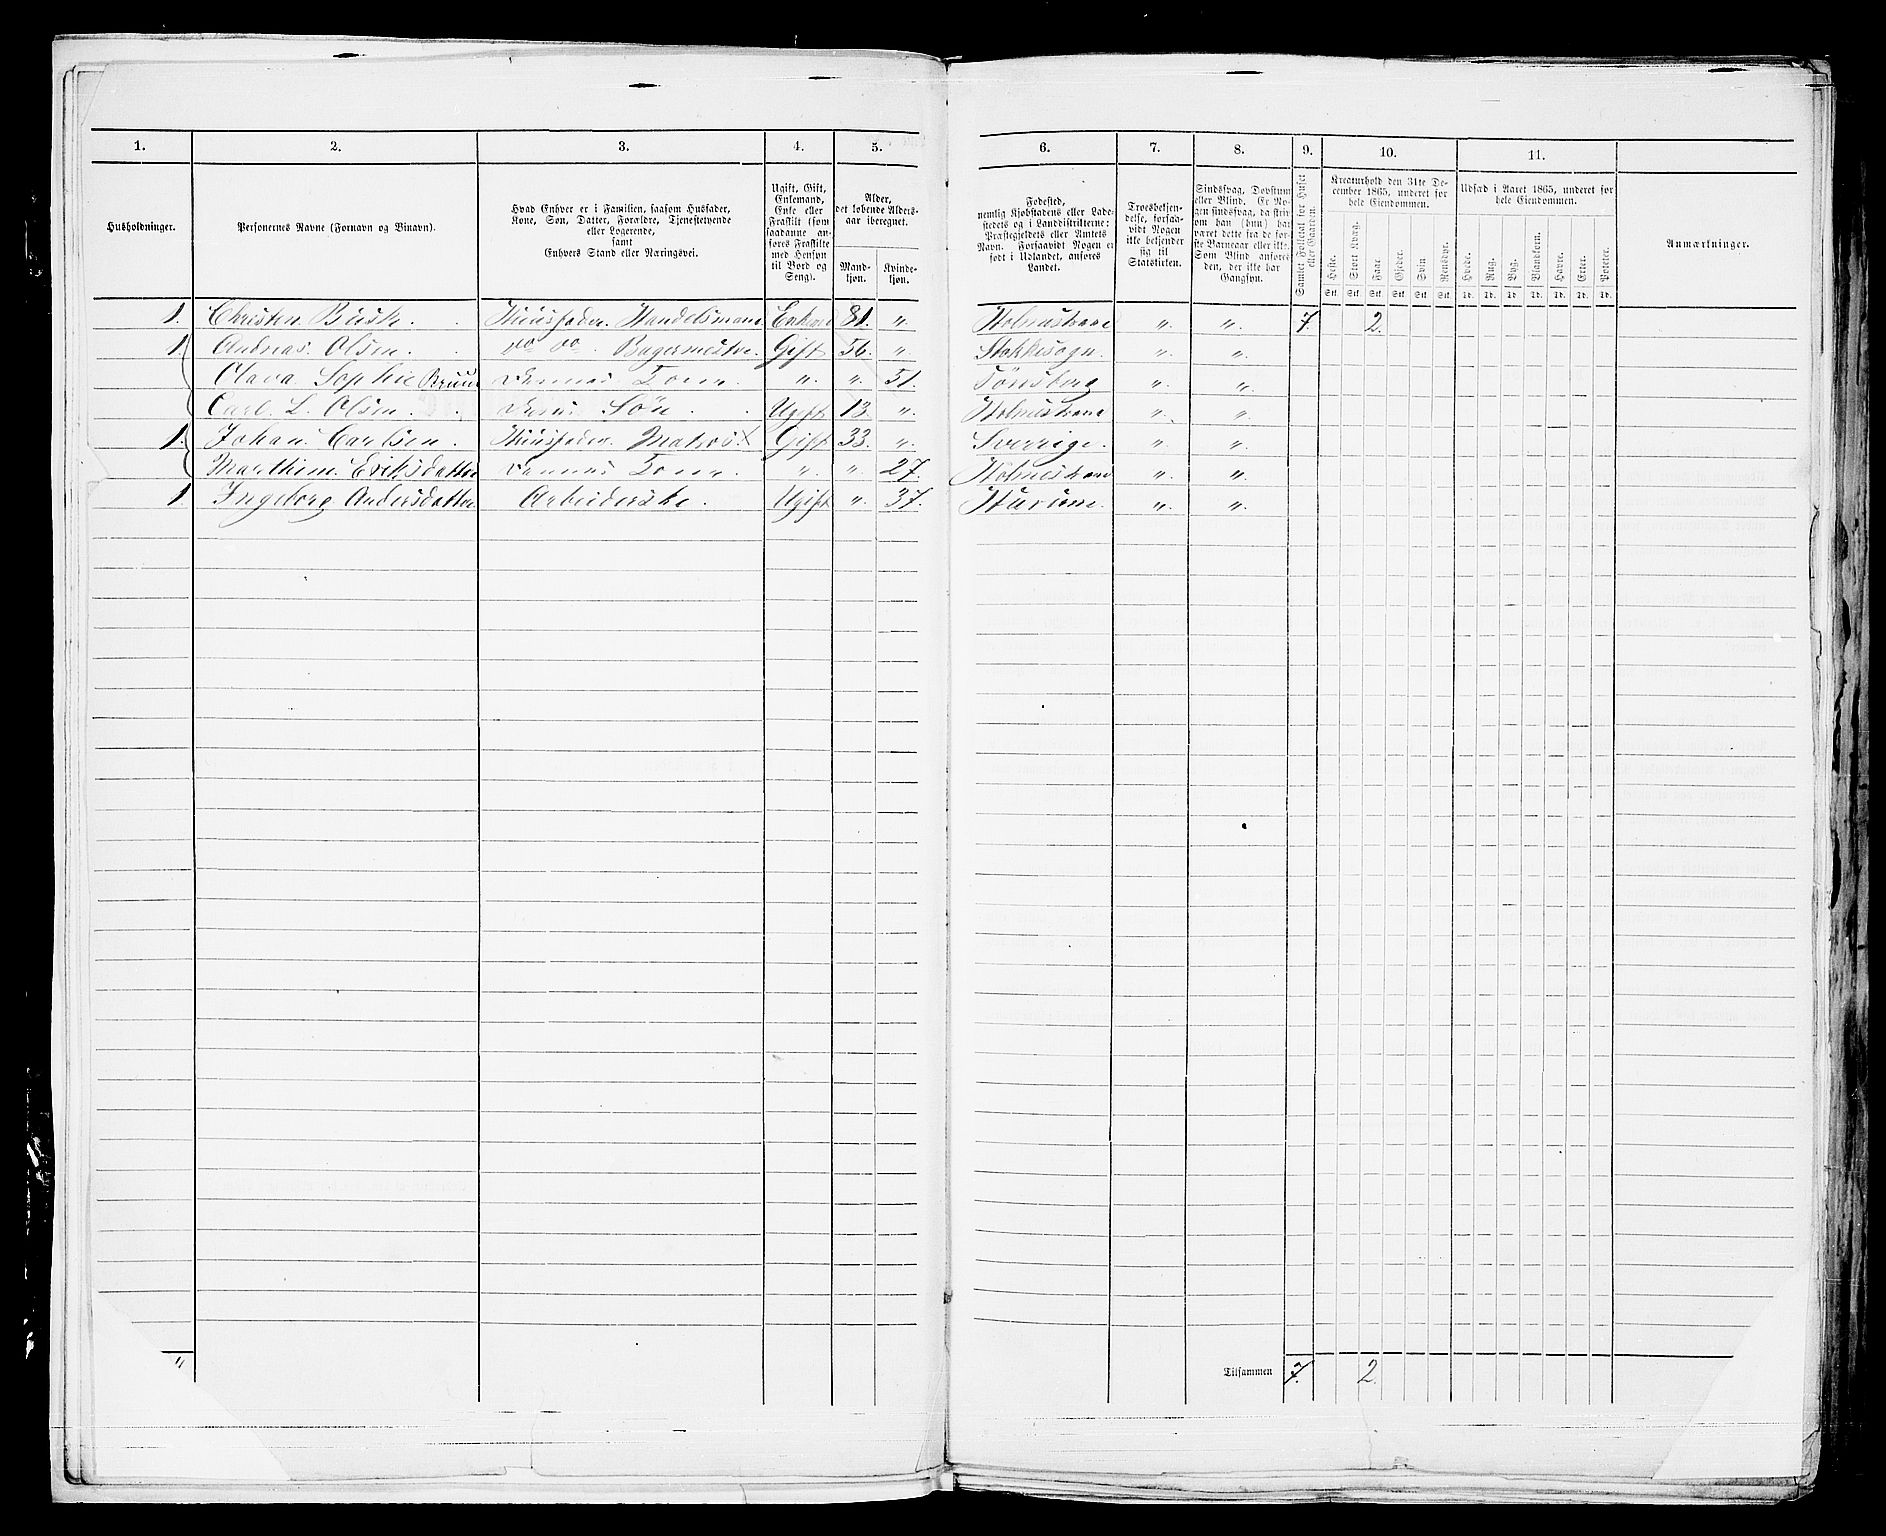 1. 2. 3. 4. 5. 6. 7. 8. 9. 10. 11.
Husholdninger.
Personernes Navne (Fornavn og Binavn).
Hvad Enhver er i Familien, saasom Husfader,
Kone, Søn, Datter, Forældre, Tjenestetyende
eller Logerende,
samt
Enhvers Stand eller Næringsvei.
Ugift, Gift,
Enkemand,
Enke eller
Fraskilt (som
saadanne an-
føres Fraskilte
med Hensyn
til Bord og
Seng).
Alder,
det løbende Alders-
aar iberegnet.
Mand-
kjøn.
Kvinde-
kjøn.
Fødested,
nemlig Kjøbstadens eller Lade-
stedets og i Landdistrikterne:
Præstegjeldets eller Amtets
Navn. Forsaavidt Nogen er
født i Udlandet, anføres
Landet.
Troesbekjen-
delse, forsaa-
vidt Nogen
ikke bekjender
sig til
Statskirken.
Sindssvag, Døvstum
eller Blind. Er No-
gen sindssvag, da skriv
om han (hun) har
været dette fra de før-
ste Barneaar eller ikke.
Som Blind anføres
den, der ikke har
Gangsyn.
Samlet Folketal for Huset
eller Gaarden.
Kreaturhold den 31te De-
cember 1865, underet for
hele Eiendommen.
Heste. Stort Kvæg. Faar. Gjeder. Svin. Rensdyr.
Stk. Stk. Stk. Stk. Stk. Stk.
Udsæd i Aaret 1865, underet for
hele Eiendommen.
Hvede. Rug. Byg. Blandkorn. Havre. Erter. Poteter.
Td. Td. Td. Td. Td. Td. Td.
Anmærkninger.
1. Christen Busk. Huusfader. Handelsmand. Enkem 81. " Holmestrand " " 7. 2.
1. Andreas Olsen. do do. Bagermester. Gift 56. " Stokkesogn. " "
Olava Sophie Bruun Dennes Kone. " " 51. Tönsberg " "
Carl L. Olsen. Deres Søn. Ugift 13. " Holmestrand " "
1. Johan Carlsen. Huusfader. Matros. Gift 33. " Sverrige. " "
Marthine Eriksdatter Dennes Kone. " " 27. Holmestrand " "
1. Ingeborg Andersdatter Arbeiderske. Ugift " 37. Hurum. " "
" Tilsammen 7. 2.